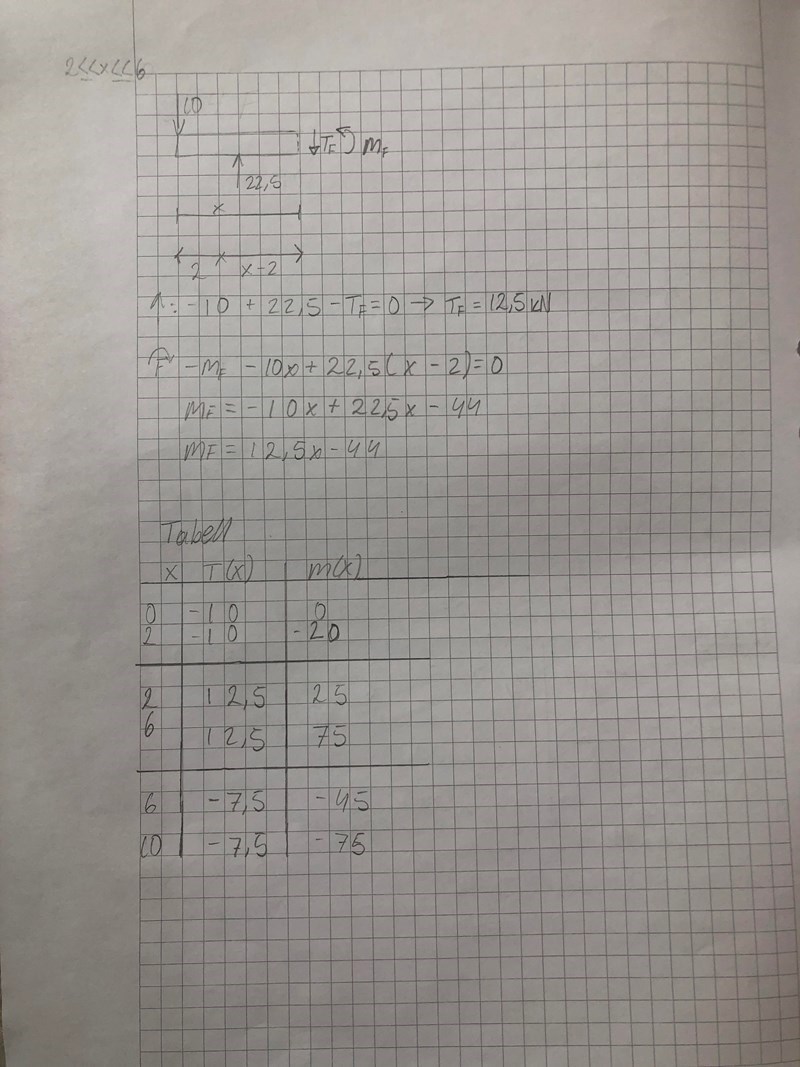 2<<x<<6
10
↓T_F M_F
22,5
x
2 x-2
↑: -10 + 22,5 - T_F = 0 → T_F = 12,5 kN
F -M_F - 10x + 22,5(x - 2) = 0
M_F = -10x + 22,5x - 44
M_F = 12,5x - 44
Tabell
x T(x) m(x)
0 -10 0
2 -10 -20
2 12,5 25
6 12,5 75
6 -7,5 -45
10 -7,5 -75